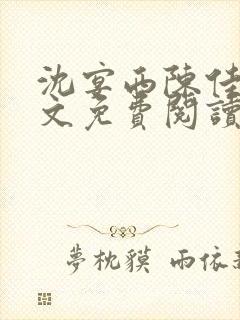 沈宴西陳佳
文免費閱讀
夢枕貘 雨依